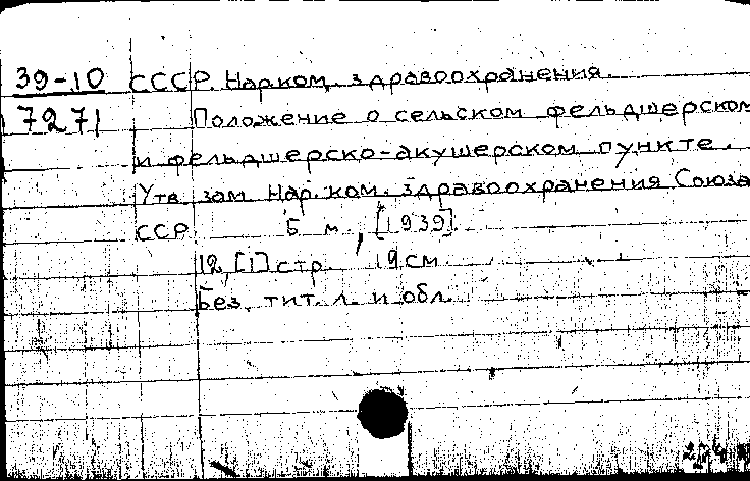 39-10 СССР. Нарком. здравоохранения.
7271 Положение о сельском фельдшерском
и фельдшерско-акушерском пункте.
Утв. зам. Нар. ком. здравоохранения Союза
ССР. Б. м., [1939].
12, [1] стр. 19 см.
Без тит. л. и обл.